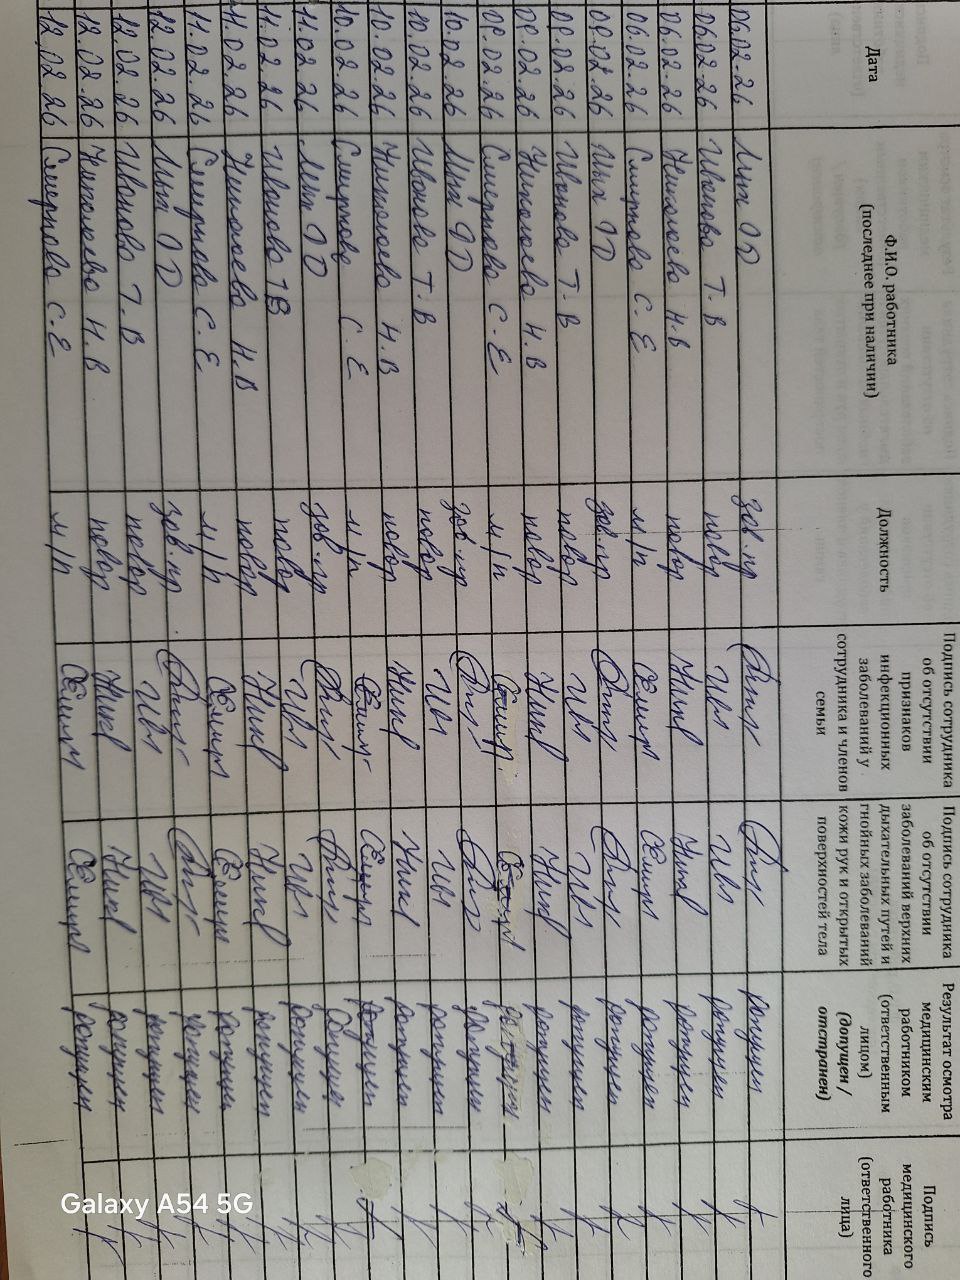 Дата
Ф.И.О. работника
(последнее при наличии)
Должность
Подпись сотрудника
об отсутствии
признаков
инфекционных
заболеваний у
сотрудника и членов
семьи
Подпись сотрудника
об отсутствии
заболеваний верхних
дыхательных путей и
гнойных заболеваний
кожи рук и открытых
поверхностей тела
Результат осмотра
медицинским
работником
(ответственным
лицом)
(допущен /
отстранен)
Подпись
медицинского
работника
(ответственного
лица)
06.02.26 зав.пр допущен
06.02.26 Иванова Т.В повар Ив допущен
06.02.26 Николаева Н.В повар Ник допущен
06.02.26 Смирнова С.Е м/п Смир допущен
09.02.26 зав.пр допущен
09.02.26 Иванова Т.В повар Ив допущен
09.02.26 Николаева Н.В повар Ник допущен
09.02.26 Смирнова С.Е м/п Смир допущен
10.02.26 зав.пр допущен
10.02.26 Иванова Т.В повар Ив допущен
10.02.26 Николаева Н.В повар Ник допущен
10.02.26 Смирнова С.Е м/п Смир допущен
11.02.26 зав.пр допущен
11.02.26 Иванова ТВ повар Ив допущен
11.02.26 Николаева Н.В повар Ник допущен
11.02.26 Смирнова С.Е м/п Смир допущен
12.02.26 зав.пр допущен
12.02.26 Иванова Т.В повар Ив допущен
12.02.26 Николаева Н.В повар Ник допущен
12.02.26 Смирнова С.Е м/п Смир допущен
Galaxy A54 5G